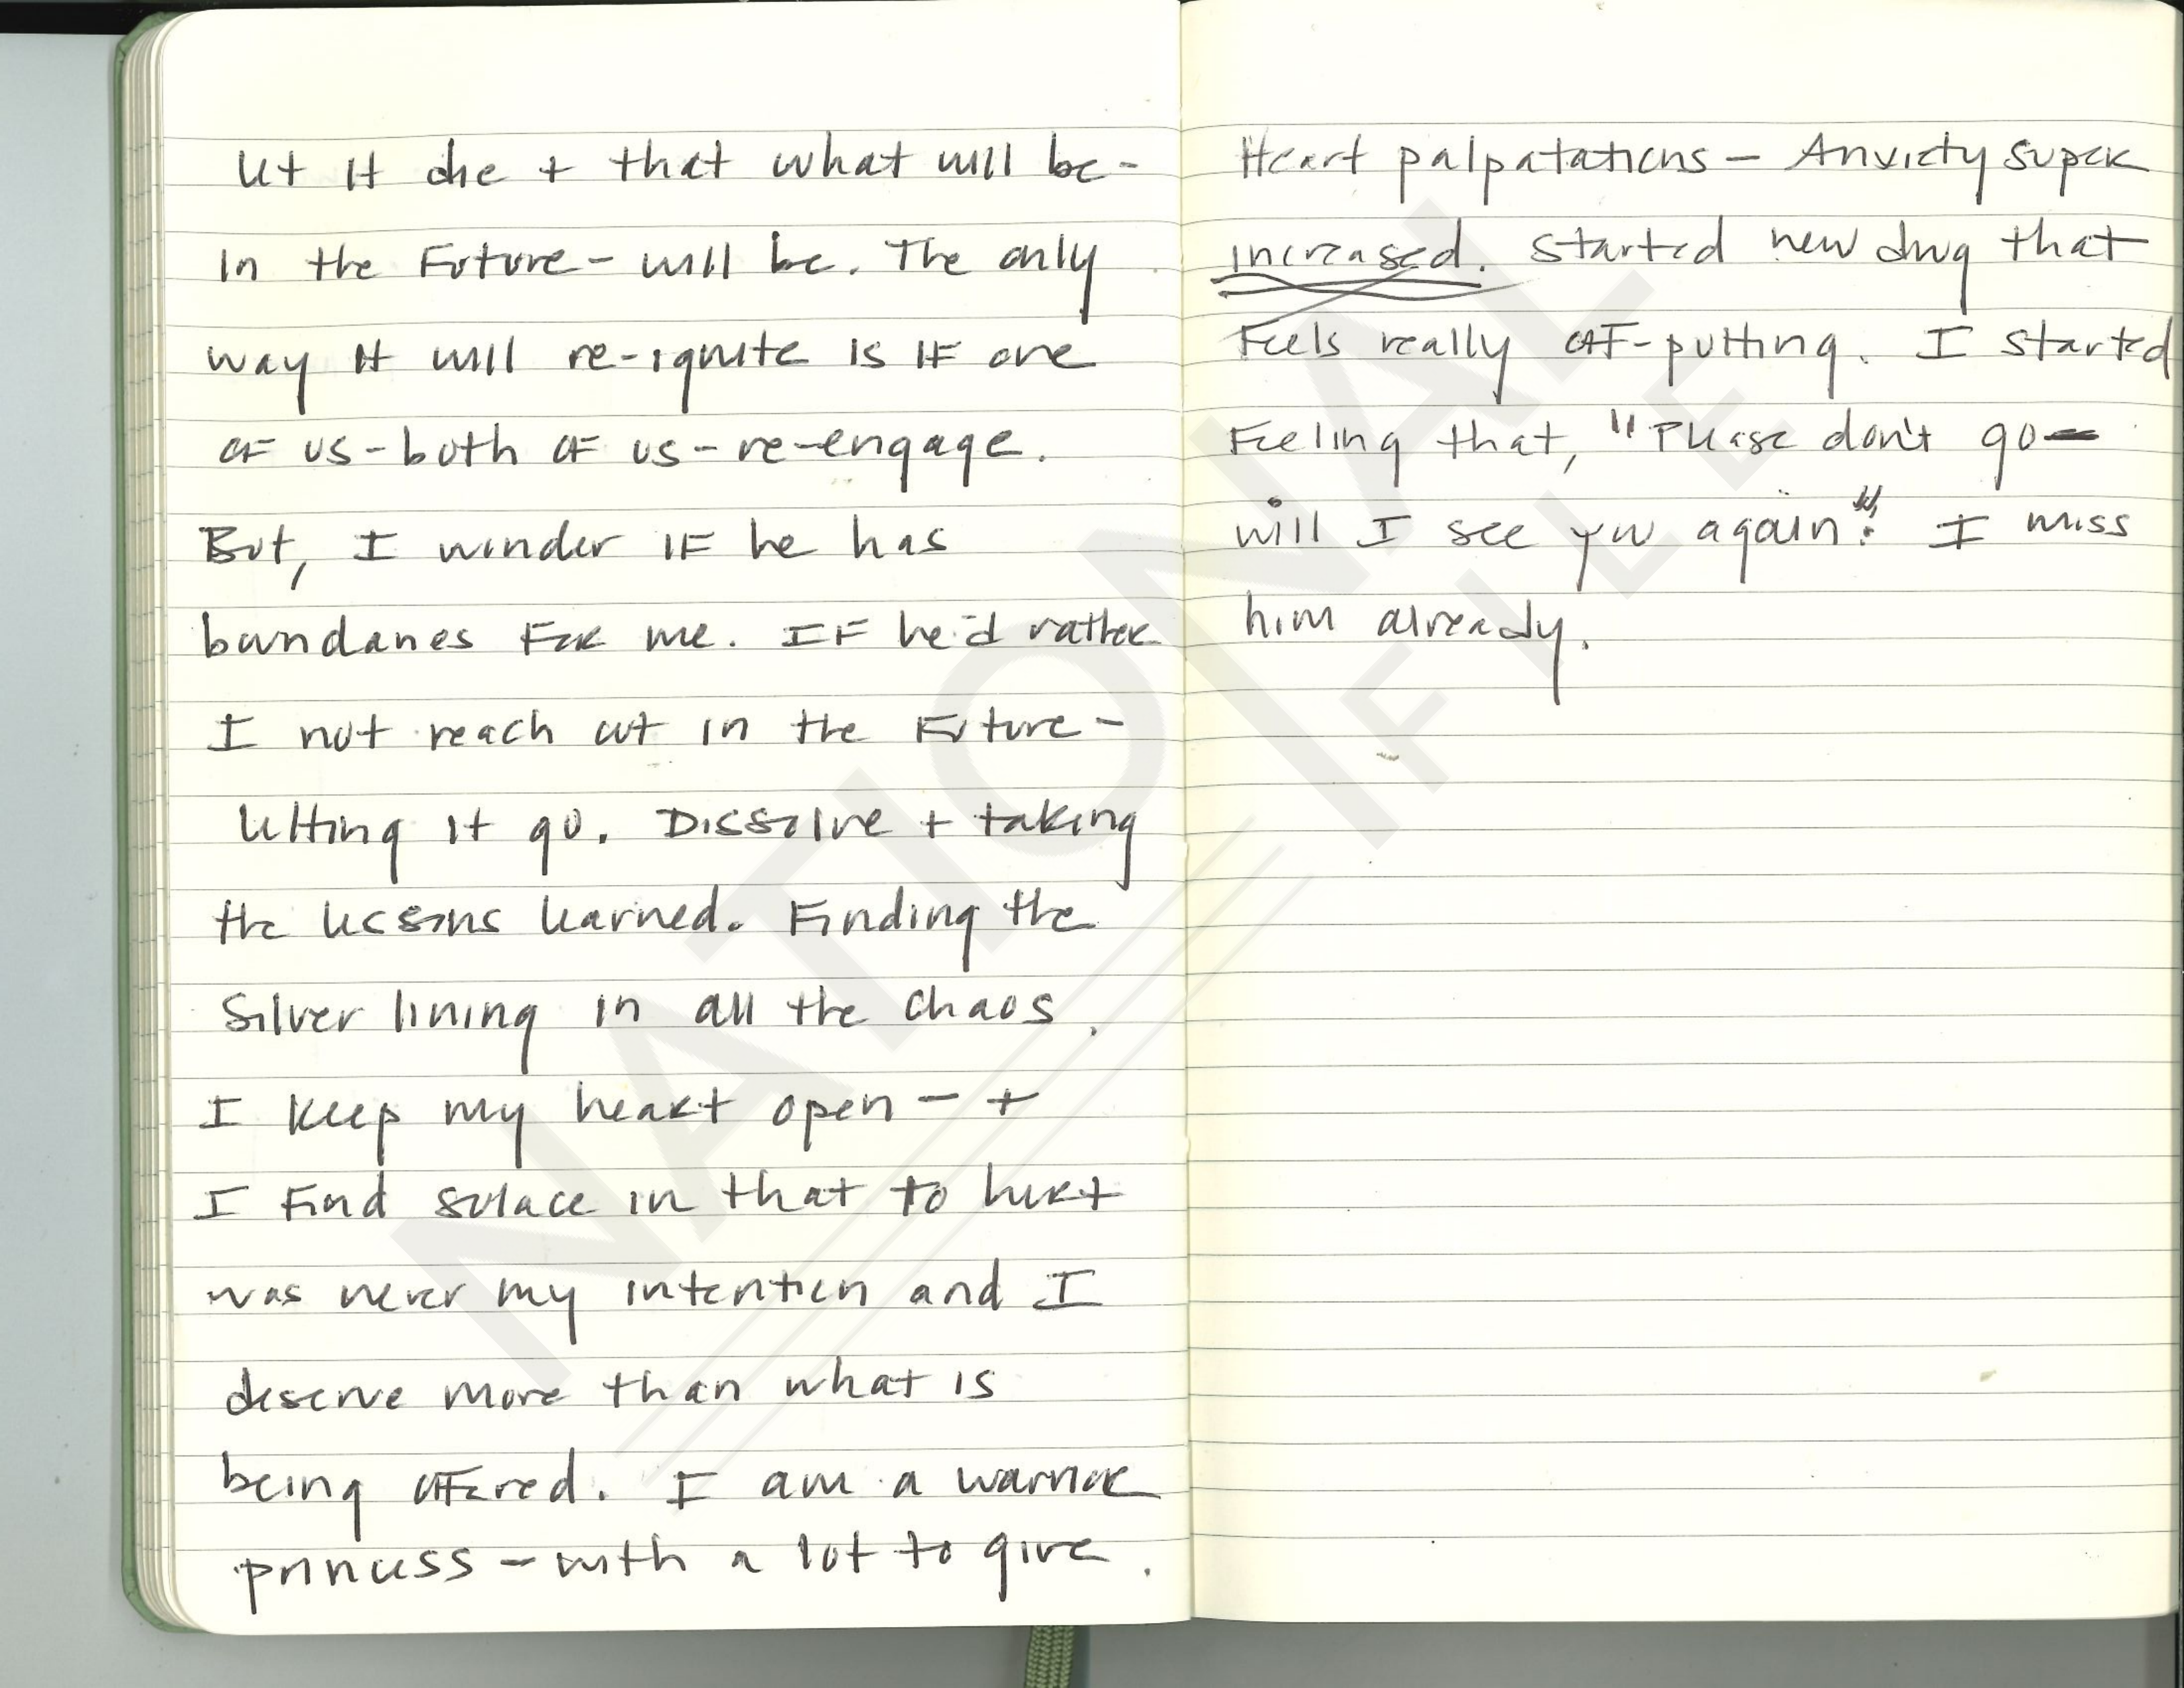 Let it die + that what will be -
in the Future - will be. The only
way it will re-ignite is IF one
OF us - both OF us - re-engage.
But, I wonder IF he has
boundaries For me. IF he'd rather
I not reach out in the Future -
Letting it go. Dissolve + taking
the lessons learned. Finding the
Silver lining in all the chaos.
I keep my heart open - +
I Find solace in that to hurt
was never my intention and I
deserve more than what is
being offered. I am a warrior
princess - with a lot to give.
Heart palpatations - Anxiety super
increased. Started new drug that
Feels really off-putting. I started
Feeling that, "Please don't go -
will I see you again"? I miss
him already.
NATIONAL
FILE